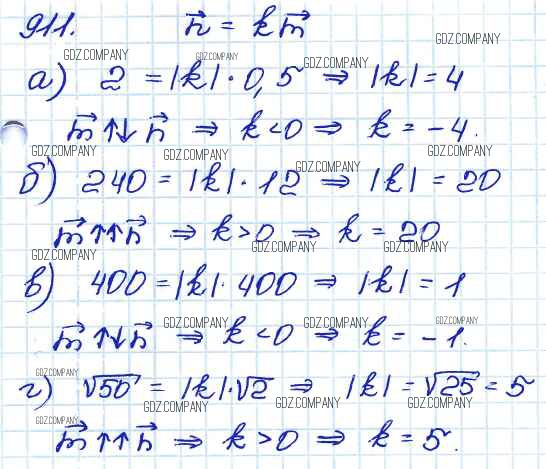 911. n⃗ = k m⃗
GDZ.COMPANY GDZ.COMPANY GDZ.COMPANY GDZ.COMPANY
а) 2 = |k| · 0,5 ⇒ |k| = 4
m⃗ ↑↓ n⃗ ⇒ k < 0 ⇒ k = -4.
GDZ.COMPANY GDZ.COMPANY GDZ.COMPANY GDZ.COMPANY
б) 240 = |k| · 12 ⇒ |k| = 20
m⃗ ↑↑ n⃗ ⇒ k > 0 ⇒ k = 20
GDZ.COMPANY GDZ.COMPANY GDZ.COMPANY
в) 400 = |k| · 400 ⇒ |k| = 1
GDZ.COMPANY GDZ.COMPANY GDZ.COMPANY
m⃗ ↑↓ n⃗ ⇒ k < 0 ⇒ k = -1.
GDZ.COMPANY
г) √50 = |k| · √2 ⇒ |k| = √25 = 5
GDZ.COMPANY GDZ.COMPANY GDZ.COMPANY GDZ.COMPANY
m⃗ ↑↑ n⃗ ⇒ k > 0 ⇒ k = 5.